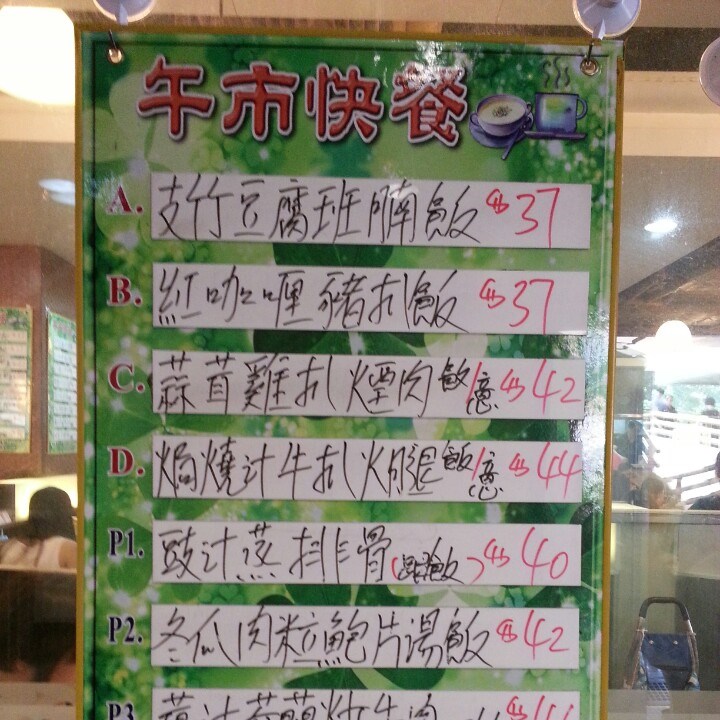 午市快餐
A. 支竹豆腐班腩飯 $37
B. 紅咖喱豬扒飯 $37
C. 蒜茸雞扒煙肉飯/意 $42
D. 焗燒汁牛扒火腿飯/意 $44
P1. 豉汁蒸排骨(跟飯) $40
P2. 冬瓜肉粒鮑片湯飯 $42
P3.